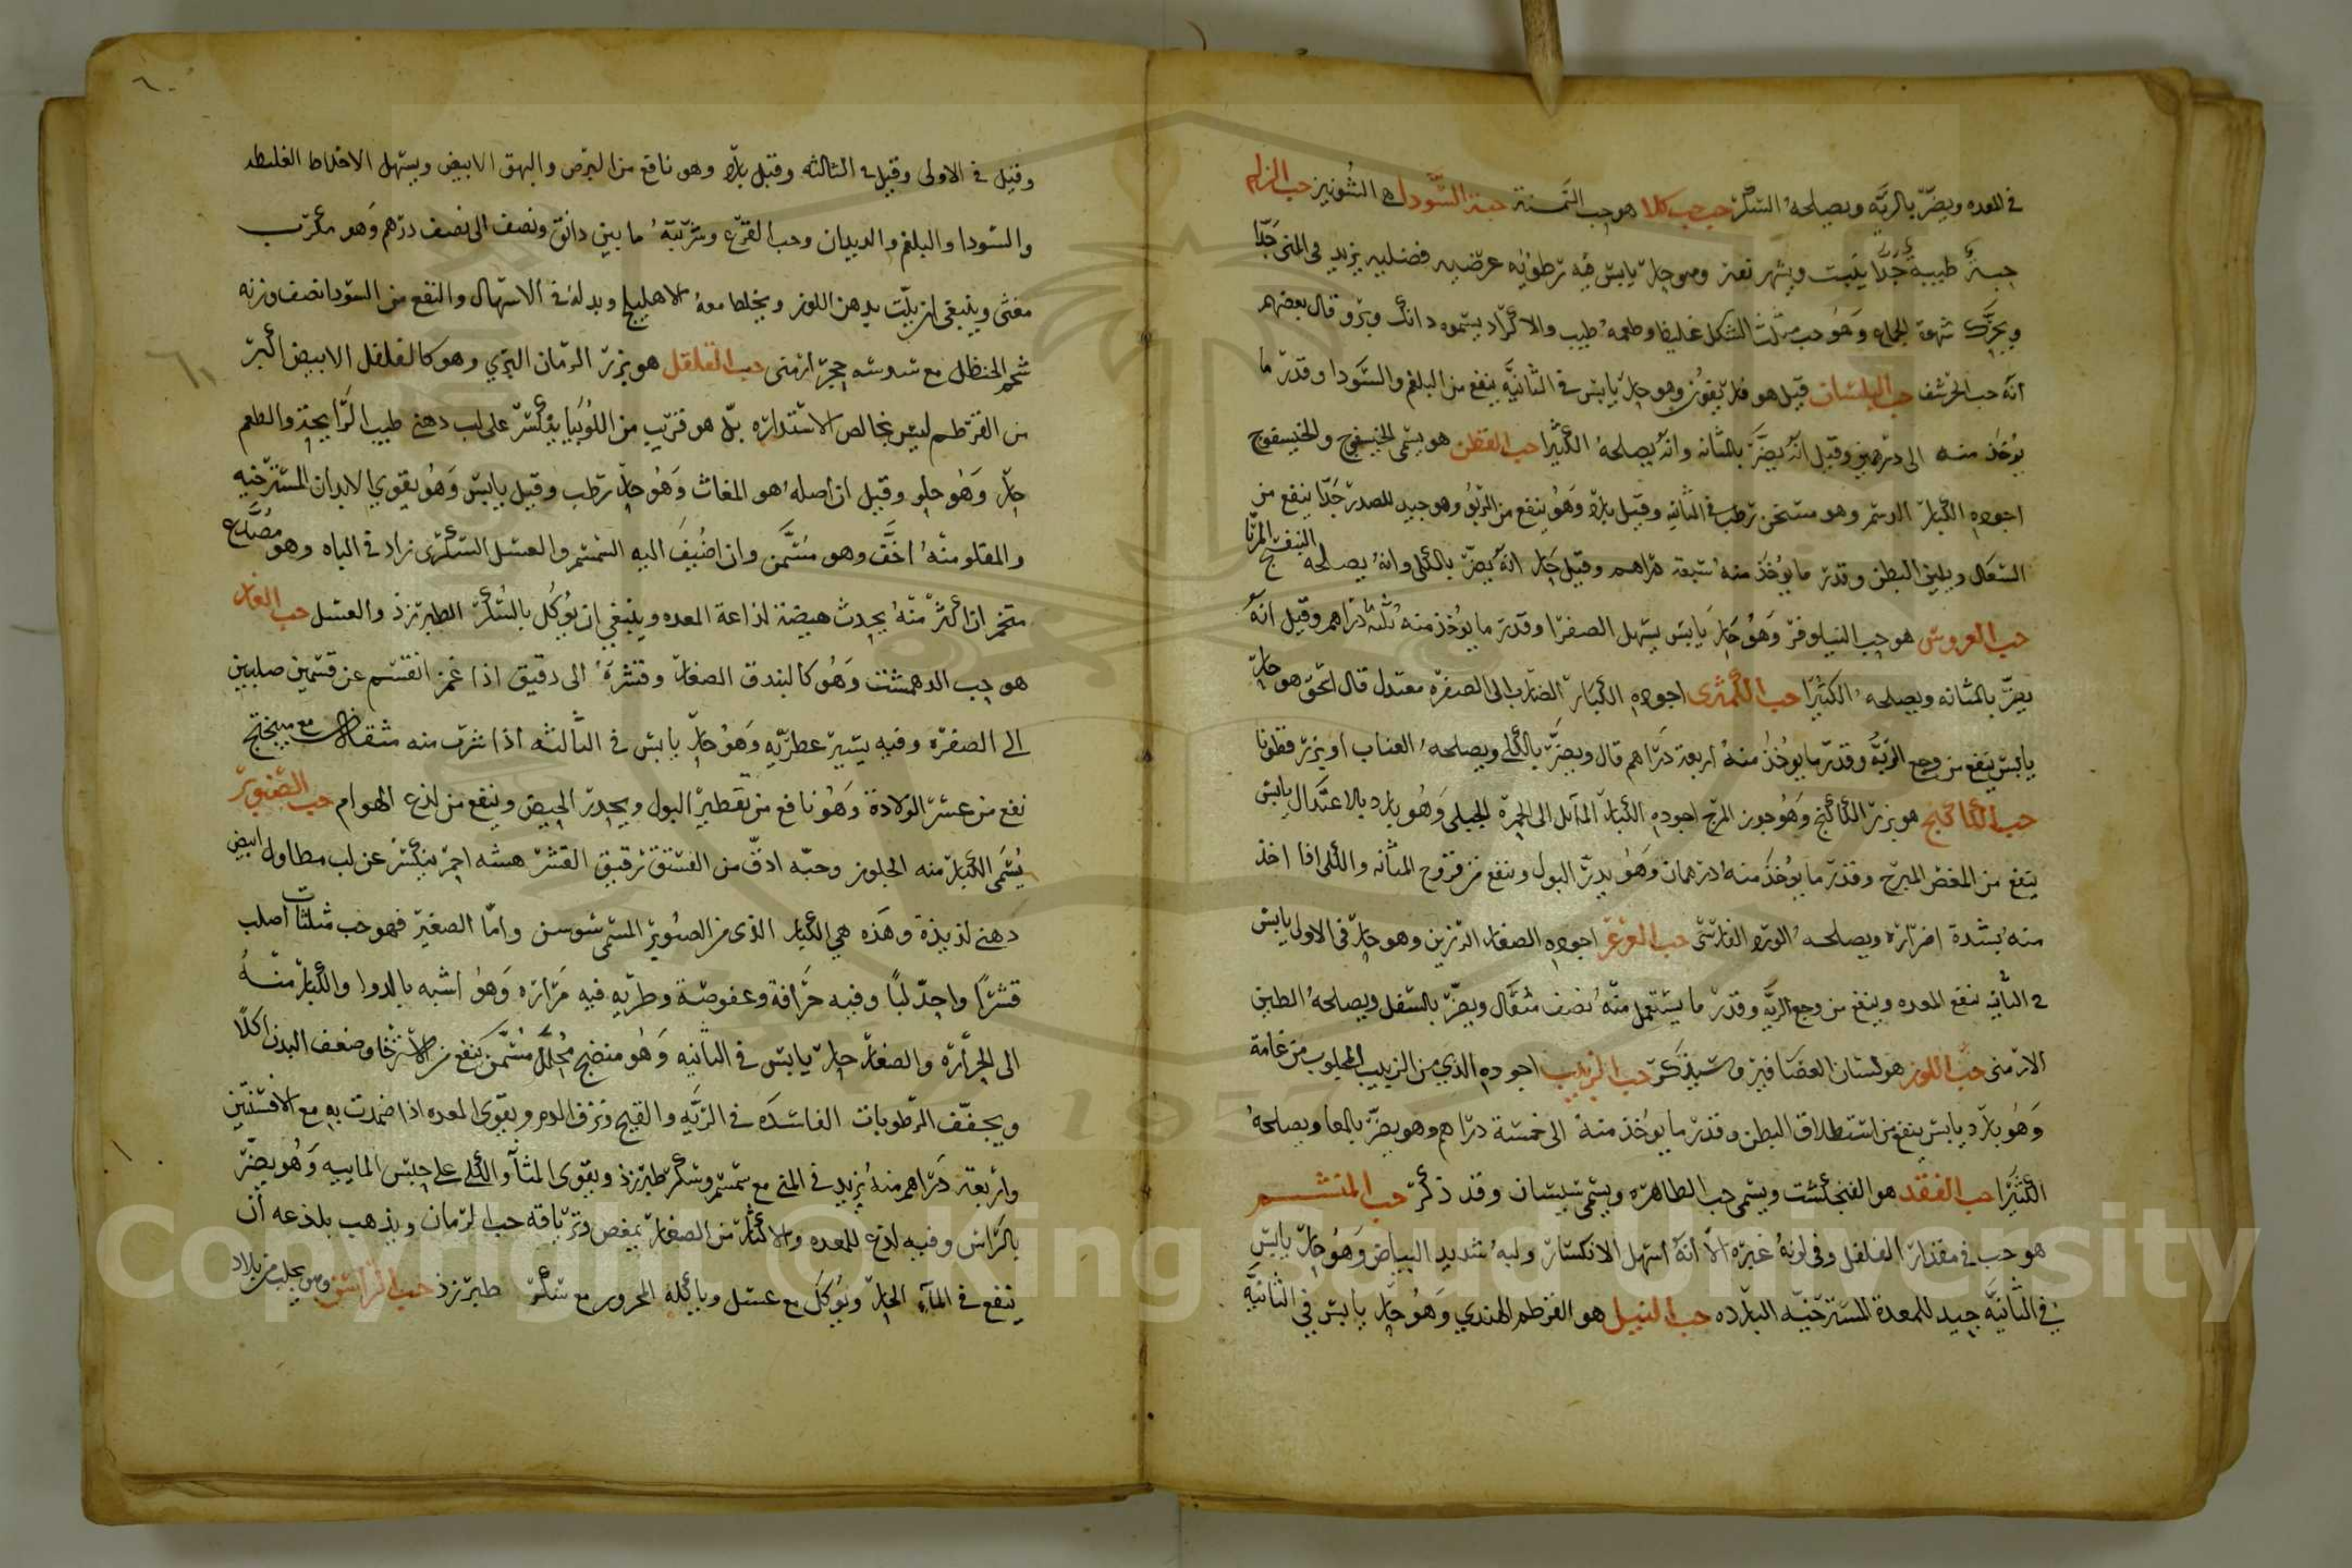 في المعده ويضر بالريه ويصلحه السكر حب كلا هو حب السمنة حبة السودا هي الشونيز حب الزلم
حبة طيبة جدا وهو حار يابس فيه رطوبه عرضيه فضليه يزيد في المنى جدا
ويحرك شهوة الجماع وهو حب مثلث الشكل وطعمه طيب والاكراد يسموه وقال بعضهم
انه حب الخرشف حب البلسان قيل هو وهو حار يابس في الثانيه ينفع من البلغم والسودا وقدر ما
يؤخذ منه الى درهمين وقيل انه يضر بالمثانه وانه يصلحه الكثيرا حب القطن هو يسمى الخيسفوج
اجوده الكبار الدسم وهو مسخن رطب في الثانيه وقيل بارد وهو ينفع من الربو وهو جيد للصدر جدا ينفع من
السعال ويلين البطن وقدر ما يؤخذ منه سبعة دراهم وقيل حار انه يضر بالكلى وانه يصلحه البنفسج المربا
حب العروس هو حب النيلوفر وهو حار يابس يسهل الصفرا وقدر ما يؤخذ منه ثلثة دراهم وقيل انه
يضر بالمثانه ويصلحه الكثيرا حب الكمثرى اجوده الكبار الضارب الى الصفره معتدل قال اسحق هو حار
يابس ينفع من وجع الريه وقدر ما يؤخذ منه اربعة دراهم قال ويضر بالكلي ويصلحه العناب او بزر قطونا
حب الكاكنج هو بزر الكاكنج وهو جوز المرج اجوده الكبار المائل الى الحمرة الجبلي وهو بارد بالاعتدال يابس
ينفع من المغص المبرح وقدر ما يؤخذ منه درهمان وهو يدر البول وينفع من قروح المثانه والكلى اذا اخذ
منه بشدة اضراره ويصلحه الورد الفارسى حب العرعر اجوده الصغار الرزين وهو حار في الاولى يابس
في الثانيه ينفع المعده وينفع من وجع الريه وقدر ما يستعمل منه نصف مثقال ويضر بالسفل ويصلحه الطين
الارمنى حب اللوز هو لسان العصافير وسيذكر حب الزبيب اجوده الذي من الزبيب المجلوب من عامة
وهو بارد يابس ينفع من استطلاق البطن وقدر ما يؤخذ منه الى خمسة دراهم وهو يضر بالمعا ويصلحه
الكثيرا حب الفقد هو الفنجنكشت ويسمى حب الطاهره ويسمى سيسبان وقد ذكر حب المنشم
هو حب في مقدار الفلفل وفي لونه غبره الا انه اسهل الانكسار ولبه شديد البياض وهو حار يابس
في الثانيه جيد للمعدة المسترخيه البارده حب النيل هو القرطم الهندي وهو حار يابس في الثانيه
٦٠
وقيل في الاولى وقيل في الثالثه وقيل بارد وهو نافع من البرص والبهق الابيض ويسهل الاخلاط الغليظه
والسودا والبلغم والديدان وحب القرع وشربته ما بين دانق ونصف الى نصف درهم وهو مكرب
مغثى وينبغى ان يلت بدهن اللوز ويخلط معه الاهليلج وبدله في الاسهال والنفع من السودا نصف وزنه
شحم الحنظل مع سدسه حجر ارمنى حب القلقل هو بزر الرمان البري وهو كالفلفل الابيض اكبر
٦١
من القرطم ليس بخالص الاستداره بل هو قريب من اللوبيا يكسر على لب دهنى طيب الرايحة والطعم
حار وهو حلو وقيل ان اصله هو المغاث وهو حار رطب وقيل يابس وهو يقوي الابدان المسترخيه
والمقلو منه اخف وهو مسمن وان اضيف اليه السمسم والعسل السكرى زاد في الباه وهو مصدع
متخم ان اكثر منه يحدث هيضة لذاعة المعده وينبغي ان يؤكل بالسكر الطبرزد والعسل حب الغار
هو حب الدهمشت وهو كالبندق الصغار وقشره الى دقيق اذا غمز انقسم عن قسمين صلبين
الى الصفره وفيه يسير عطريه وهو حار يابس في الثالثه اذا شرب منه مثقالان مع ميبختج
نفع من عسر الولادة وهو نافع من تقطير البول ويحدر الحيض وينفع من لذع الهوام حب الصنوبر
يسمى الكبار منه الجلوز وحبه ادق من الفستق رقيق القشر هشه احمر ينكسر عن لب مطاول ابيض
دهنى لذيذة وهذه هي الكبار الذى من الصنوبر المسمى سوسن واما الصغير فهو حب مثلثات اصلب
قشرا واحد لبا وفيه حرافة وعفوصة وطريه فيه مراره وهو اشبه بالدوا والكبار منه
الى الحراره والصغار حار يابس في الثانيه وهو منضج محلل مسمن ينفع من الاسترخا وضعف البدن اكلا
ويجفف الرطوبات الفاسده في الريه والقيح ونزف الدم ويقوى المعده اذا ضمدت به مع الافسنتين
واربعة دراهم منه يزيد في المني مع سمسم وسكر طبرزد ويقوى المثانه والكلي على حبس الماييه وهو يضر
بالراس وفيه لذع للمعده والاكثار من الصغار يمغص وترياقه حب الرمان ويذهب بلذعه ان
ينقع في الماء الحار ويؤكل مع عسل وياكله المحرور مع سكر طبرزد حب الراسن وهو يجلب من بلاد